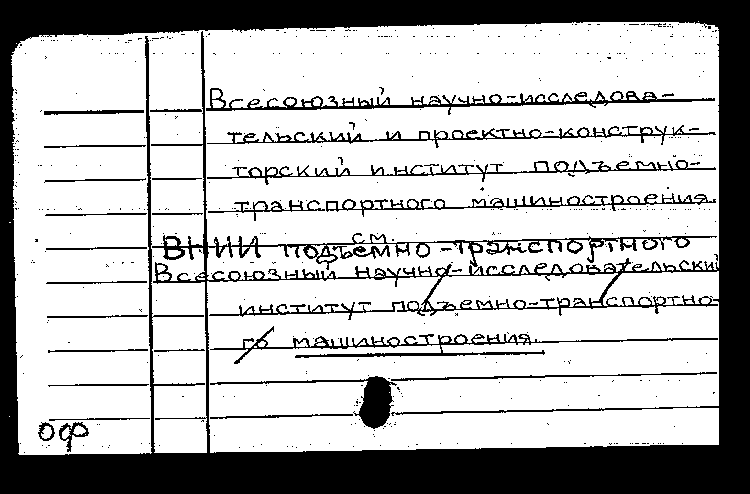 Всесоюзный научно-исследова-
тельский и проектно-конструк-
торский институт подъемно-
транспортного машиностроения.
см.
ВНИИ подъемно-транспортного
Всесоюзный научно-исследовательский
институт подъемно-транспортно-
го машиностроения.
ОФ